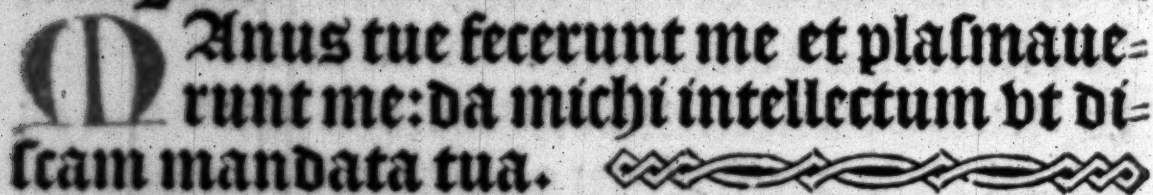 MAnus tue fecerunt me et plaſmaue⸗
runt me:da michi intellectum vt di⸗
ſcam mandata tua.